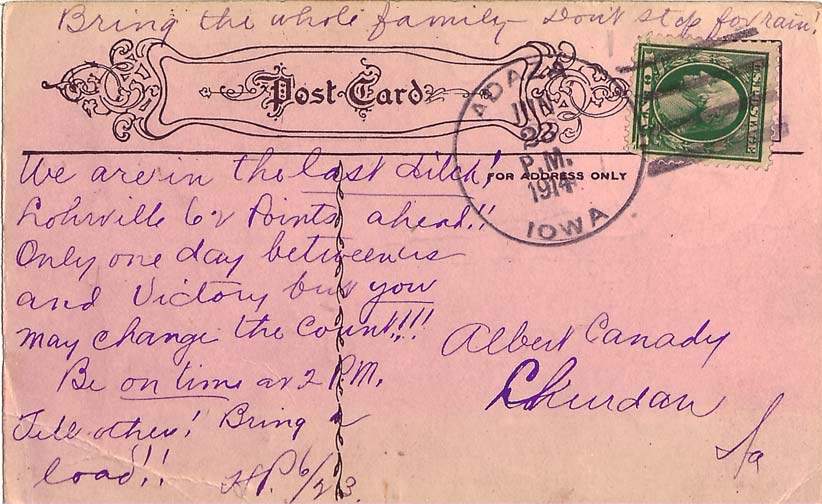 Bring the whole family Don't stop for rain!
Post Card
ADAZA
JUN
23
P.M.
1914
IOWA
FOR ADDRESS ONLY
We are in the last ditch!
Lohrville 62 Points ahead!!
Only one day between us
and Victory but you
may change the Count!!!
Be on time at 2 P.M.
Tell others! Bring a
load!! H.P. 6/23.
Albert Canady
Churdan
Ia